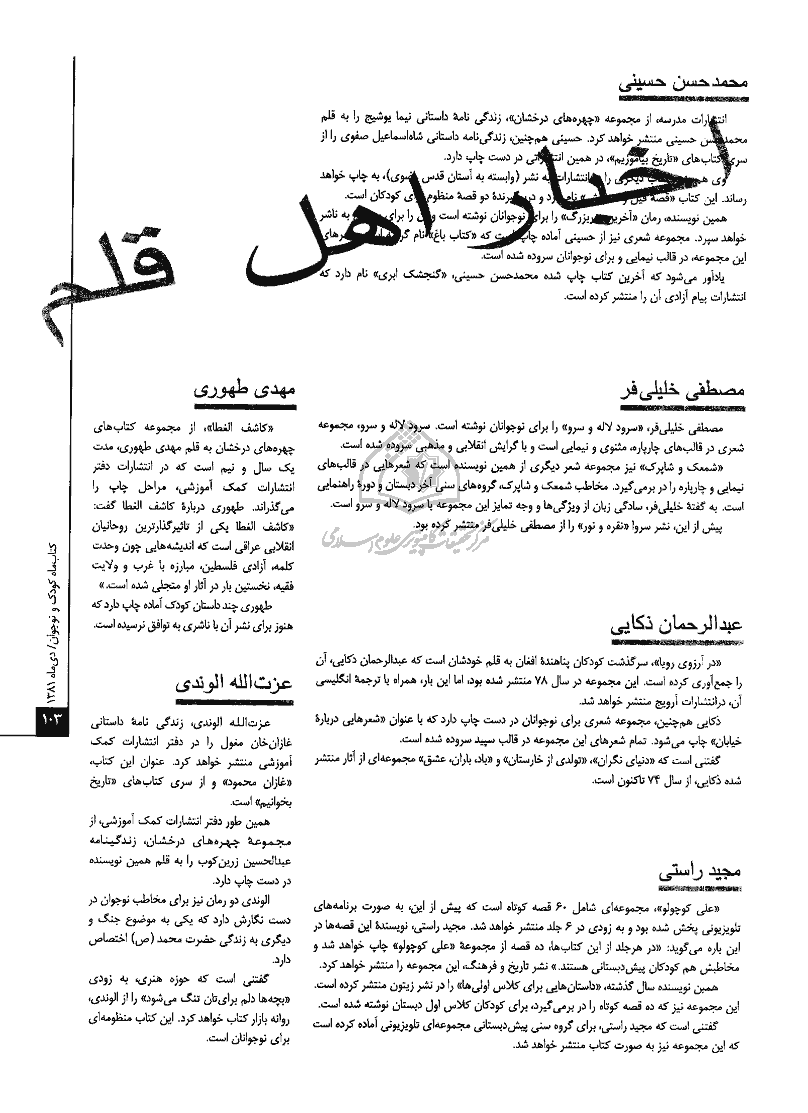 اخبار اهل قلم
محمدحسن حسینی
انتشارات مدرسه، از مجموعه «چهره‌های درخشان»، زندگی نامهٔ داستانی نیما یوشیج را به قلم
محمدحسن حسینی منتشر خواهد کرد. حسینی هم‌چنین، زندگی‌نامه داستانی شاه‌اسماعیل صفوی را از
سری کتاب‌های «تاریخ بیاموزیم»، در همین انتشاراتی در دست چاپ دارد.
وی هم دیگری را انتشارات به نشر (وابسته به آستان قدس رضوی)، به چاپ خواهد
رساند. این کتاب «قصهٔ فیل نام دارد و دربرگیرندهٔ دو قصهٔ منظوم برای کودکان است.
همین نویسنده، رمان «آخرین بزرگ» را برای نوجوانان نوشته است و آن را برای به ناشر
خواهد سپرد. مجموعه شعری نیز از حسینی آماده چاپ است که «کتاب باغ» نام گرفته است شعرهای
این مجموعه، در قالب نیمایی و برای نوجوانان سروده شده است.
یادآور می‌شود که آخرین کتاب چاپ شده محمدحسن حسینی، «گنجشک ابری» نام دارد که
انتشارات پیام آزادی آن را منتشر کرده است.
مصطفی خلیلی‌فر
مصطفی خلیلی‌فر، «سرود لاله و سرو» را برای نوجوانان نوشته است. سرود لاله و سرو، مجموعه
شعری در قالب‌های چارپاره، مثنوی و نیمایی است و با گرایش انقلابی و مذهبی سروده شده است.
«شمعک و شاپرک» نیز مجموعه شعر دیگری از همین نویسنده است که شعرهایی در قالب‌های
نیمایی و چارپاره را در برمی‌گیرد. مخاطب شمعک و شاپرک، گروه‌های سنی آخر دبستان و دورهٔ راهنمایی
است. به گفتهٔ خلیلی‌فر، سادگی زبان از ویژگی‌ها و وجه تمایز این مجموعه با سرود لاله و سرو است.
پیش از این، نشر سروا «نقره و نور» را از مصطفی خلیلی‌فر منتشر کرده بود.
مرکز تحقیقات کامپیوتری علوم اسلامی
عبدالرحمان ذکایی
«در آرزوی رویا»، سرگذشت کودکان پناهندهٔ افغان به قلم خودشان است که عبدالرحمان ذکایی، آن
را جمع‌آوری کرده است. این مجموعه در سال ۷۸ منتشر شده بود، اما این بار، همراه با ترجمهٔ انگلیسی
آن، درانتشارات آرویج منتشر خواهد شد.
ذکایی هم‌چنین، مجموعه شعری برای نوجوانان در دست چاپ دارد که با عنوان «شعرهایی دربارهٔ
خیابان» چاپ می‌شود. تمام شعرهای این مجموعه در قالب سپید سروده شده است.
گفتنی است که «دنیای نگران»، «تولدی از خارستان» و «باد، باران، عشق» مجموعه‌ای از آثار منتشر
شده ذکایی، از سال ۷۴ تاکنون است.
مجید راستی
«علی کوچولو»، مجموعه‌ای شامل ۶۰ قصه کوتاه است که پیش از این، به صورت برنامه‌های
تلویزیونی پخش شده بود و به زودی در ۶ جلد منتشر خواهد شد. مجید راستی، نویسندهٔ این قصه‌ها در
این باره می‌گوید: «در هرجلد از این کتاب‌ها، ده قصه از مجموعهٔ «علی کوچولو» چاپ خواهد شد و
مخاطبش هم کودکان پیش‌دبستانی هستند.» نشر تاریخ و فرهنگ، این مجموعه را منتشر خواهد کرد.
همین نویسنده سال گذشته، «داستان‌هایی برای کلاس اولی‌ها» را در نشر زیتون منتشر کرده است.
این مجموعه نیز که ده قصه کوتاه را در برمی‌گیرد، برای کودکان کلاس اول دبستان نوشته شده است.
گفتنی است که مجید راستی، برای گروه سنی پیش‌دبستانی مجموعه‌ای تلویزیونی آماده کرده است
که این مجموعه نیز به صورت کتاب منتشر خواهد شد.
مهدی طهوری
«کاشف الغطا»، از مجموعه کتاب‌های
چهره‌های درخشان به قلم مهدی طهوری، مدت
یک سال و نیم است که در انتشارات دفتر
انتشارات کمک آموزشی، مراحل چاپ را
می‌گذراند. طهوری دربارهٔ کاشف الغطا گفت:
«کاشف الغطا یکی از تاثیرگذارترین روحانیان
انقلابی عراقی است که اندیشه‌هایی چون وحدت
کلمه، آزادی فلسطین، مبارزه با غرب و ولایت
فقیه، نخستین بار در آثار او متجلی شده است.»
طهوری چند داستان کودک آماده چاپ دارد که
هنوز برای نشر آن با ناشری به توافق نرسیده است.
عزت‌الله الوندی
عزت‌الله الوندی، زندگی نامهٔ داستانی
غازان‌خان مغول را در دفتر انتشارات کمک
آموزشی منتشر خواهد کرد. عنوان این کتاب،
«غازان محمود» و از سری کتاب‌های «تاریخ
بخوانیم» است.
همین طور دفتر انتشارات کمک آموزشی، از
مجموعهٔ چهره‌های درخشان، زندگینامه
عبدالحسین زرین‌کوب را به قلم همین نویسنده
در دست چاپ دارد.
الوندی دو رمان نیز برای مخاطب نوجوان در
دست نگارش دارد که یکی به موضوع جنگ و
دیگری به زندگی حضرت محمد (ص) اختصاص
دارد.
گفتنی است که حوزه هنری، به زودی
«بچه‌ها دلم برای‌تان تنگ می‌شود» را از الوندی،
روانه بازار کتاب خواهد کرد. این کتاب منظومه‌ای
برای نوجوانان است.
کتاب‌ماه کودک و نوجوان/ دی‌ماه ۱۳۸۱
۱۰۳